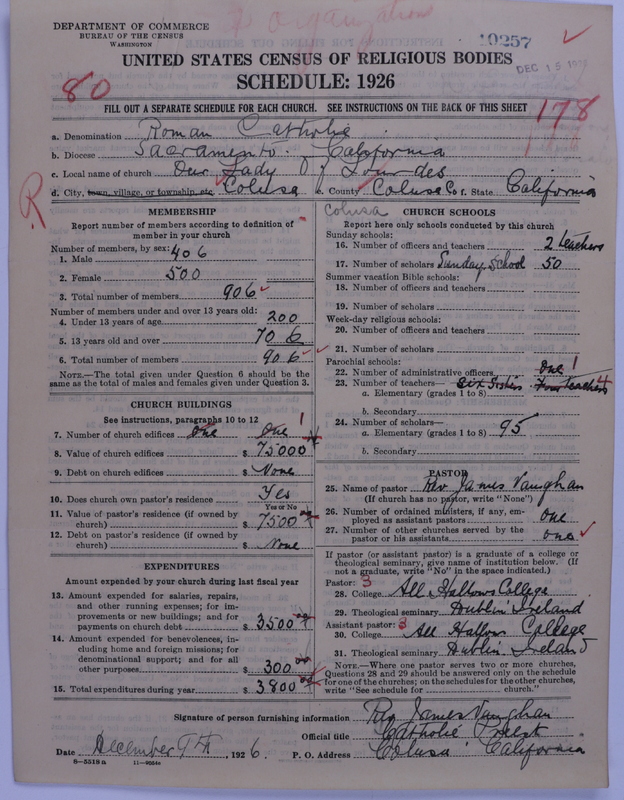 DEPARTMENT OF COMMERCE
BUREAU OF THE CENSUS
WASHINGTON
10257
DEC 15
UNITED STATES CENSUS OF RELIGIOUS BODIES
SCHEDULE: 1926
80
FILL OUT A SEPARATE SCHEDULE FOR EACH CHURCH. SEE INSTRUCTIONS ON THE BACK OF THIS SHEET
178
a. Denomination Roman Catholic
b. Diocese Sacramento. California
c. Local name of church Our Lady Of Lourdes
d. City, town, village, or township, etc. Colusa e. County Colusa Co f. State California
R
MEMBERSHIP
Report number of members according to definition of member in your church
Number of members, by sex:
1. Male 406
2. Female 500
3. Total number of members 906
Number of members under and over 13 years old:
4. Under 13 years of age 200
5. 13 years old and over 706
6. Total number of members 906
NOTE.—The total given under Question 6 should be the
same as the total of males and females given under Question 3.
CHURCH BUILDINGS
See instructions, paragraphs 10 to 12
7. Number of church edifices One One 1
8. Value of church edifices $ 75000
9. Debt on church edifices $ None
10. Does church own pastor's residence Yes
Yes or No
11. Value of pastor's residence (if owned by
church) $ 7500
12. Debt on pastor's residence (if owned by
church) $ None
EXPENDITURES
Amount expended by your church during last fiscal year
13. Amount expended for salaries, repairs,
and other running expenses; for im-
provements or new buildings; and for
payments on church debt $ 3500
14. Amount expended for benevolences, in-
cluding home and foreign missions; for
denominational support; and for all
other purposes $ 300
15. Total expenditures during year $ 3800
Colusa
CHURCH SCHOOLS
Report here only schools conducted by this church
Sunday schools:
16. Number of officers and teachers 2 teachers
17. Number of scholars Sunday School 50
Summer vacation Bible schools:
18. Number of officers and teachers
19. Number of scholars
Week-day religious schools:
20. Number of officers and teachers
21. Number of scholars
Parochial schools:
22. Number of administrative officers One 1
23. Number of teachers— Six Sisters Four teachers 4
a. Elementary (grades 1 to 8)
b. Secondary
24. Number of scholars—
a. Elementary (grades 1 to 8) 95
b. Secondary
PASTOR
25. Name of pastor Rev James Vaughan
(If church has no pastor, write "None")
26. Number of ordained ministers, if any, em-
ployed as assistant pastors one
27. Number of other churches served by the
pastor or his assistants one
If pastor (or assistant pastor) is a graduate of a college or
theological seminary, give name of institution below. (If
not a graduate, write "No" in the space indicated.)
Pastor: 3
28. College All Hallows College
29. Theological seminary Dublin Ireland
Assistant pastor: 3
30. College All Hallows College
31. Theological seminary Dublin. Ireland
NOTE.—Where one pastor serves two or more churches,
Questions 28 and 29 should be answered only on the schedule
for one of the churches; on the schedules for the other churches,
write "See schedule for church."
Signature of person furnishing information Rev James Vaughan
Official title Catholic Priest
Date December 9th, 1926. P. O. Address Colusa California
8—5518a 11—9654c